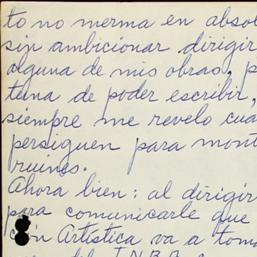 to no merma en absol
sin ambicionar dirigir
alguna de mis obras, p
tuna de poder escribir,
siempre me revelo cua
persiguen para mont
ruines.
Ahora bien: al dirigir
para comunicarle que
ción Artística va a toma
I.N.B.A.